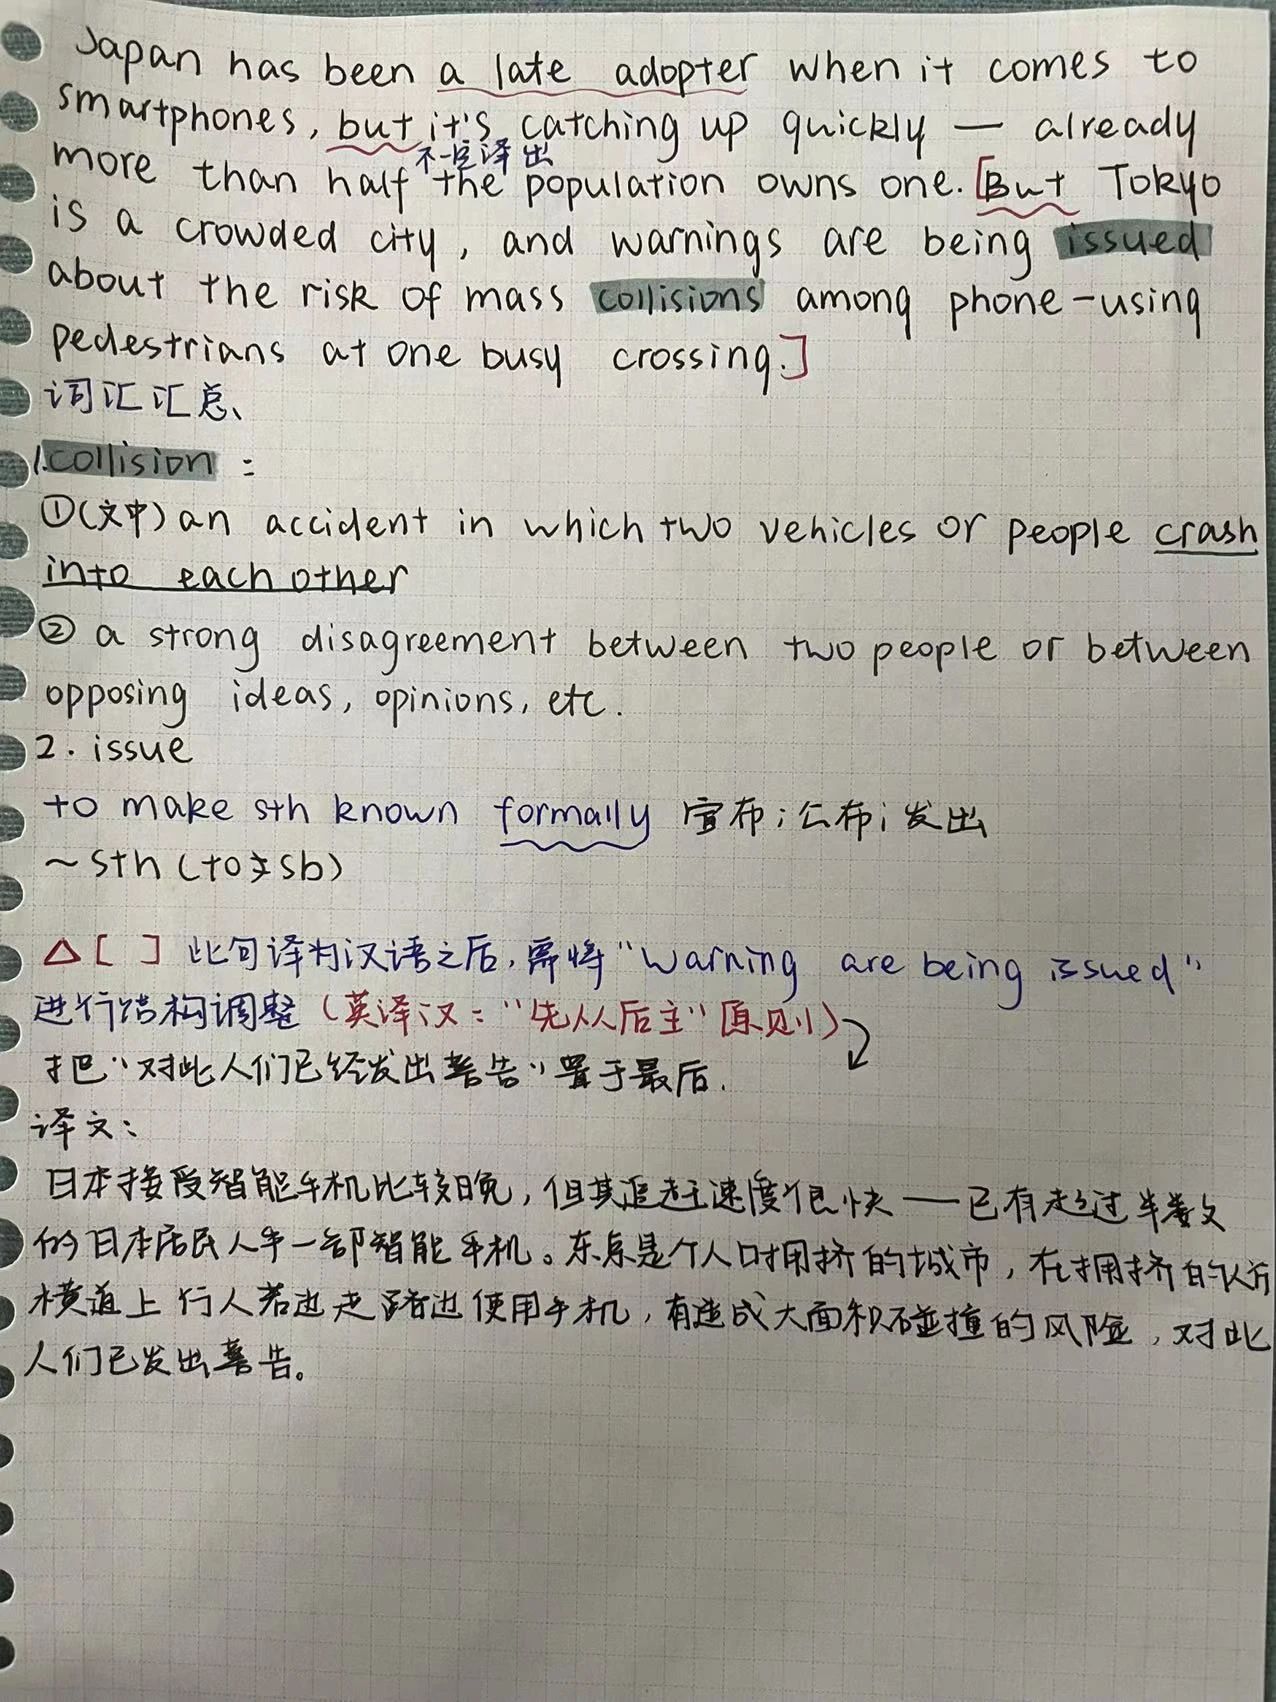 Japan has been a late adopter when it comes to
smartphones, but it's catching up quickly — already
不一定译出
more than half the population owns one. [But Tokyo
is a crowded city, and warnings are being issued
about the risk of mass collisions among phone-using
pedestrians at one busy crossing.]
词汇汇总、
1.collision :
①(文中) an accident in which two vehicles or people crash
into each other
② a strong disagreement between two people or between
opposing ideas, opinions, etc.
2. issue
to make sth known formally 宣布;公布;发出
~ sth (to sb)
△ [ ] 此句译为汉语之后,需将"warning are being issued"
进行结构调整 (英译汉:"先从后主"原则)
把"对此人们已经发出警告"置于最后.
译文:
日本接受智能手机比较晚,但其追赶速度很快——已有超过半数
的日本居民人手一部智能手机。东京是个人口拥挤的城市,在拥挤的人行
横道上行人若边走路边使用手机,有造成大面积碰撞的风险,对此
人们已发出警告。